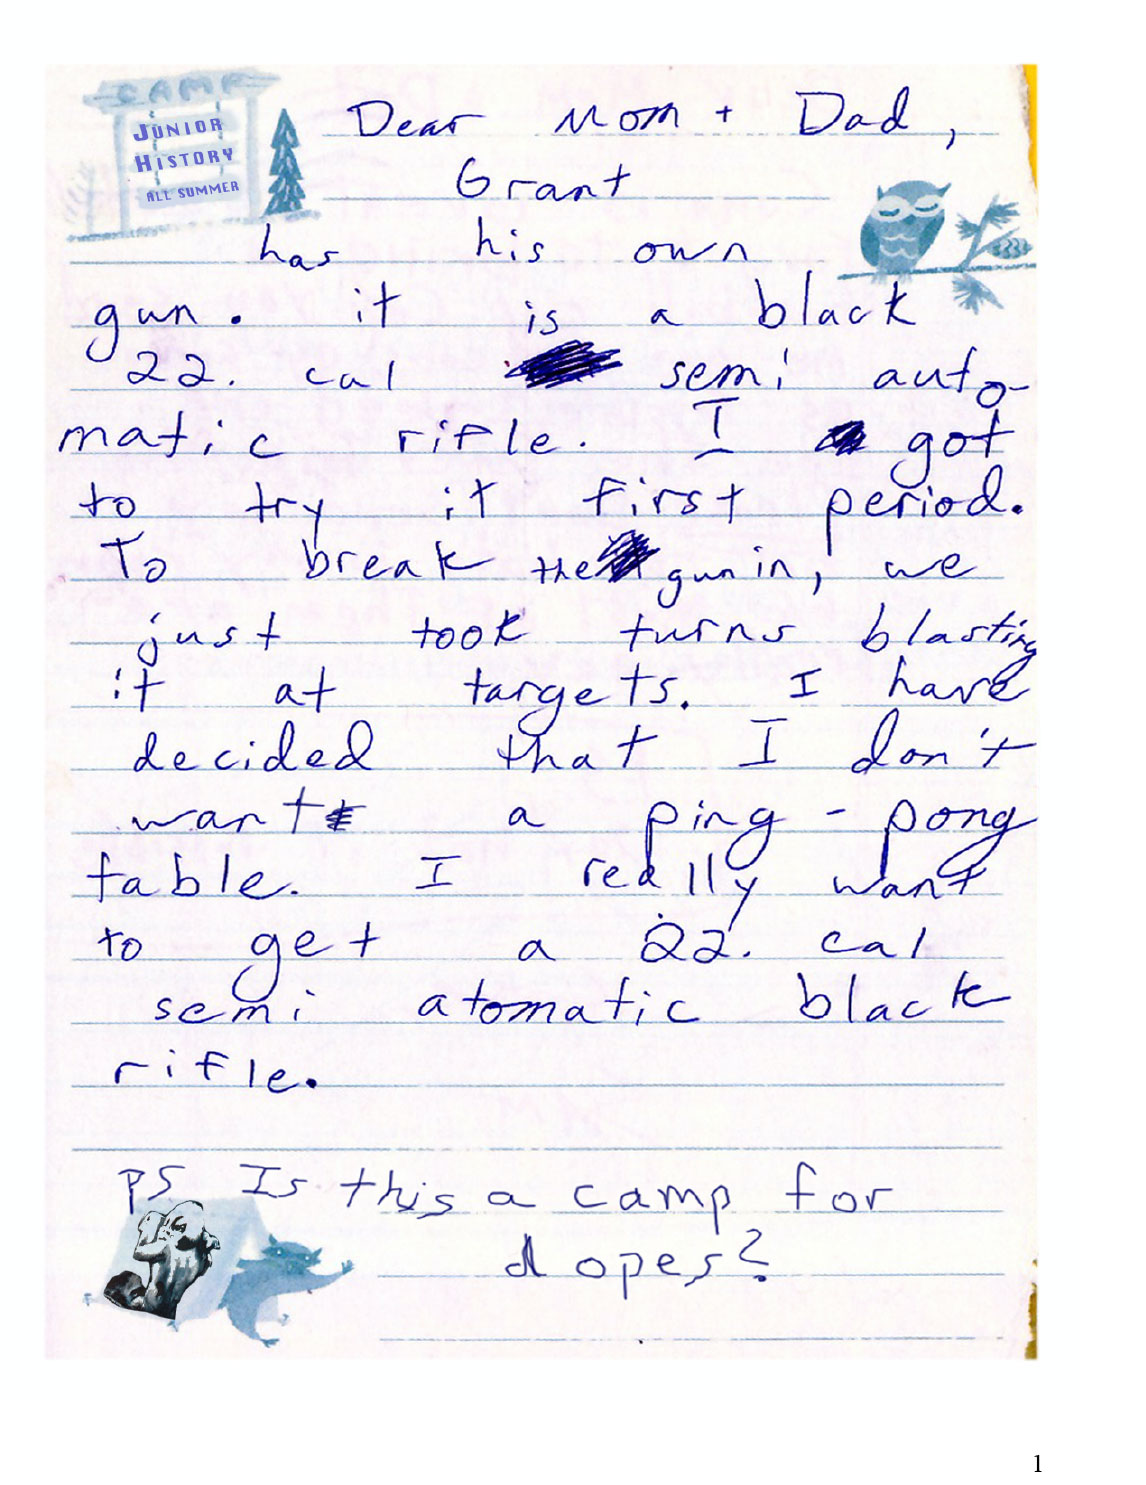 CAMP
JUNIOR
HISTORY
ALL SUMMER
Dear Mom + Dad,
Grant
has his own
gun. it is a black
22. cal semi auto-
matic rifle. I got
to try it first period.
To break the gun in, we
just took turns blasting
it at targets. I have
decided that I don't
want a ping-pong
table. I really want
to get a 22. cal
semi atomatic black
rifle.
PS Is this a camp for
dopes?
1